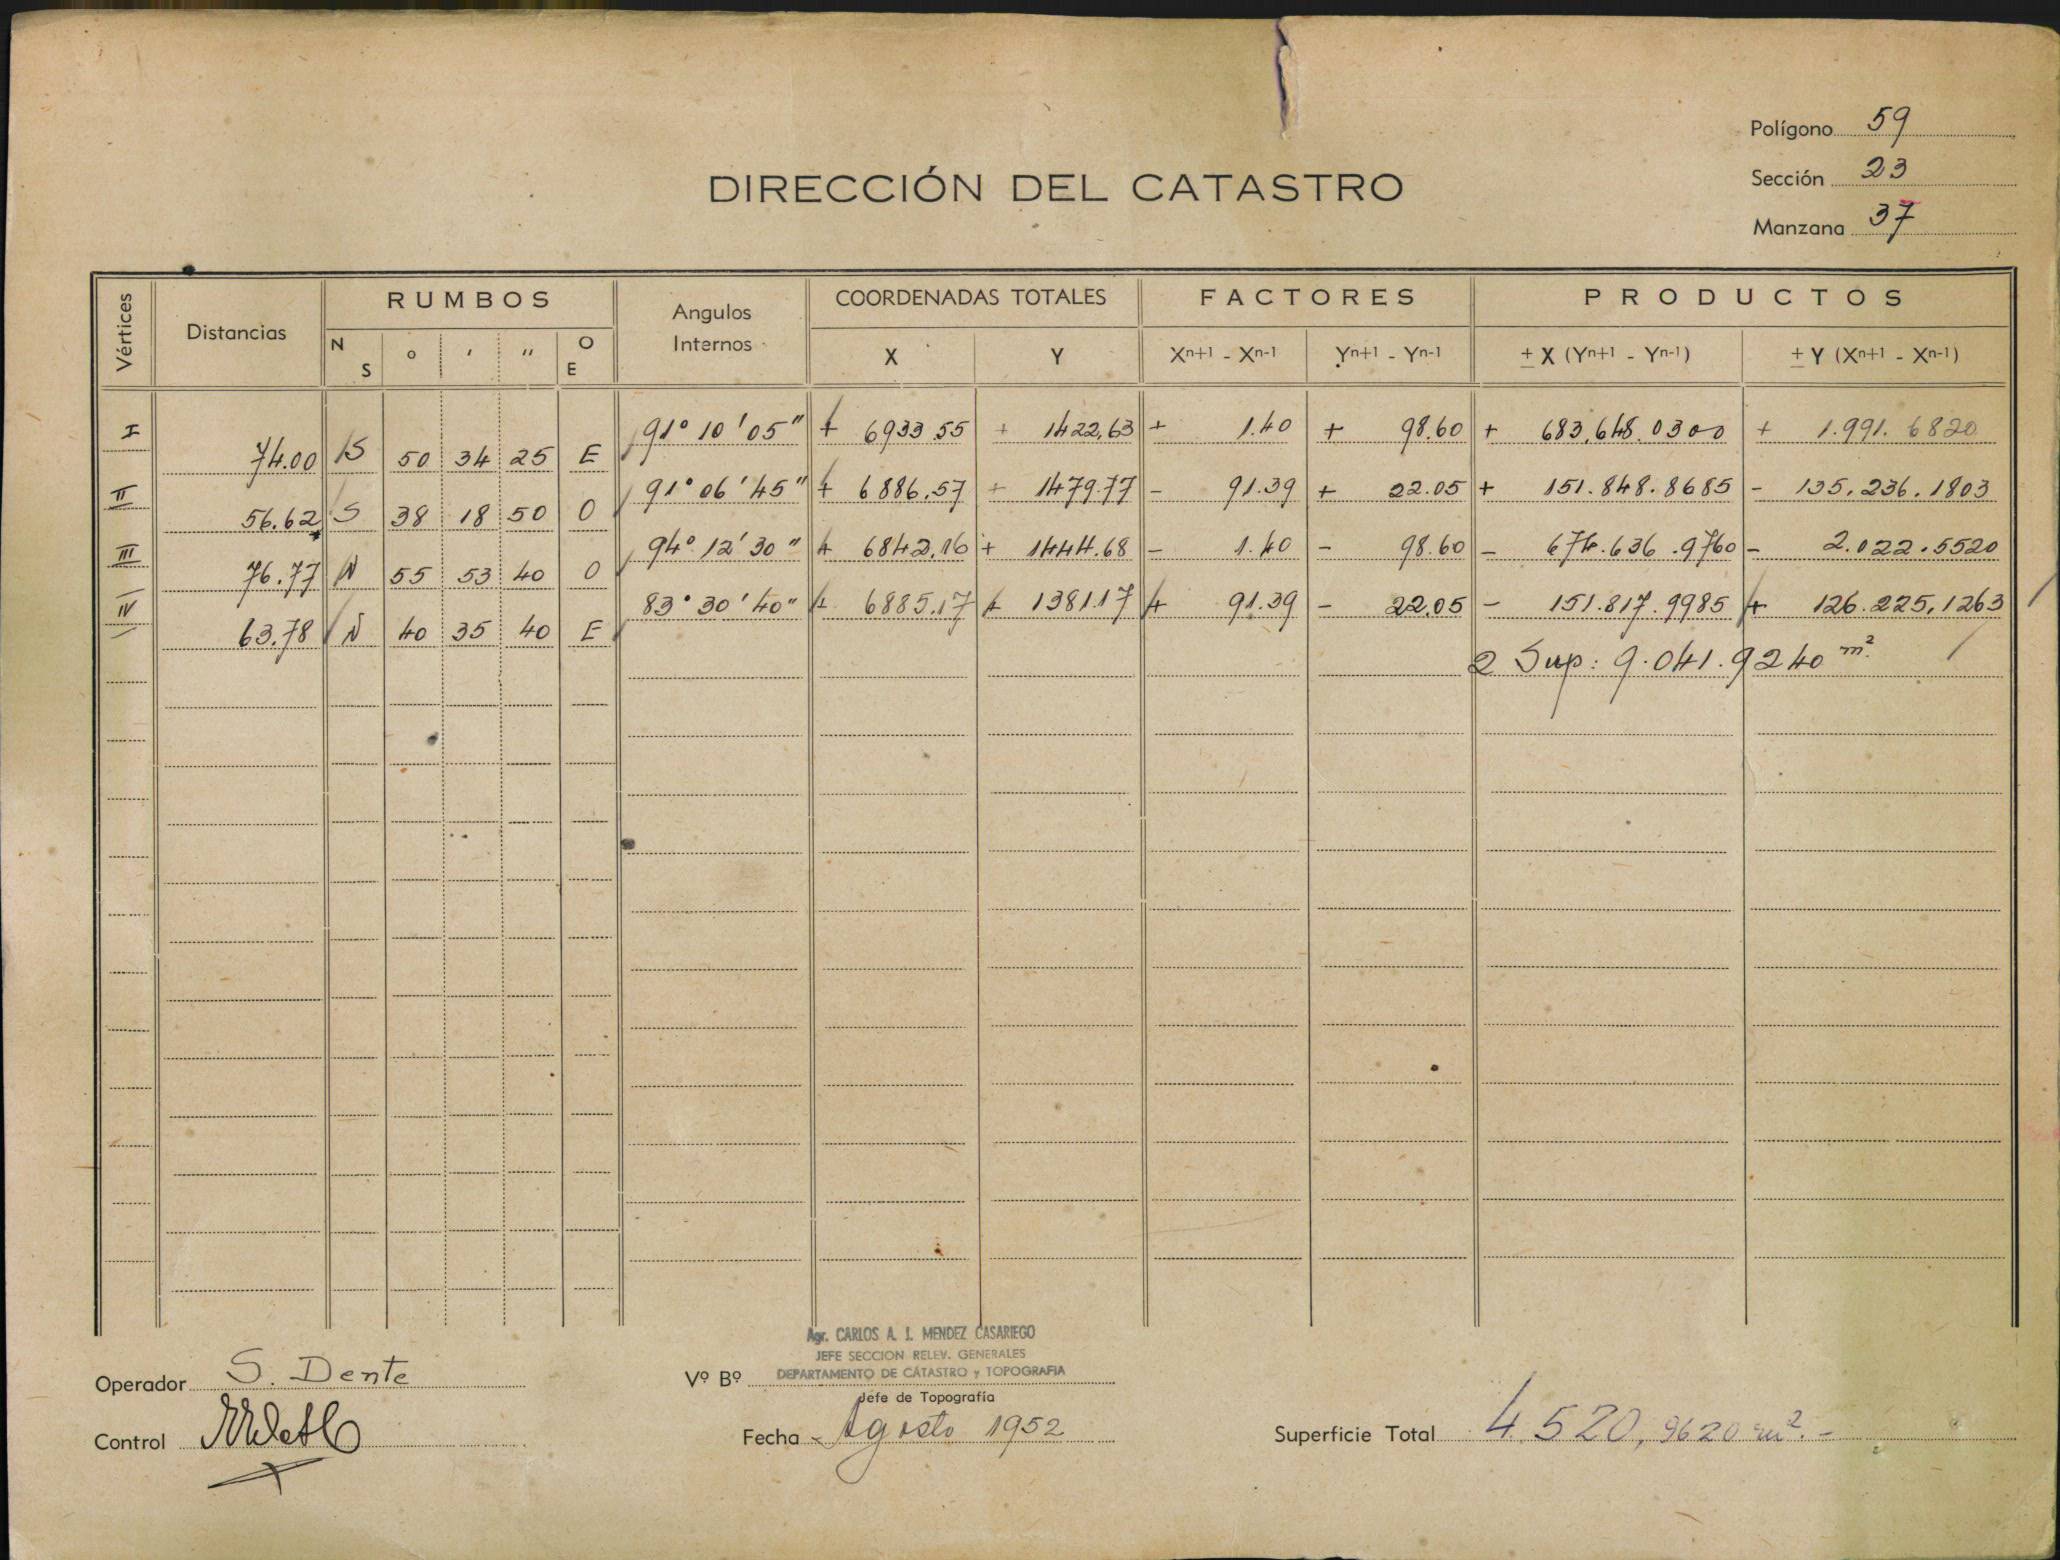 Polígono 59
Sección 23
Manzana 37
DIRECCIÓN DEL CATASTRO
Vértices Distancias RUMBOS Angulos Internos COORDENADAS TOTALES FACTORES PRODUCTOS
N S ° ' " O E X Y Xn+1 - Xn-1 Yn+1 - Yn-1 ± X (Yn+1 - Yn-1) ± Y (Xn+1 - Xn-1)
I 91° 10' 05" + 6933.55 + 1422,63 + 1.40 + 98.60 + 683,648.0300 + 1.991.6820
74.00 S 50 34 25 E
II 91° 06' 45" + 6886,57 + 1479.77 - 91.39 + 22.05 + 151.848.8685 - 135.236.1803
56.62 S 38 18 50 O
III 94° 12' 30" + 6842,16 + 1444.68 - 1.40 - 98.60 - 674.636.9760 - 2.022.5520
76.77 N 55 53 40 O
IV 83° 30' 40" + 6885.17 + 1381.17 + 91.39 - 22.05 - 151.817.9985 + 126.225,1263
63.78 N 40 35 40 E
2 Sup: 9.041.9240 m².
Agr. CARLOS A. J. MENDEZ CASARIEGO
JEFE SECCION RELEV. GENERALES
DEPARTAMENTO DE CATASTRO y TOPOGRAFIA
Operador S. Dente
Vº Bº
Jefe de Topografía
Control
Fecha Agosto 1952
Superficie Total 4.520,9620 m².-